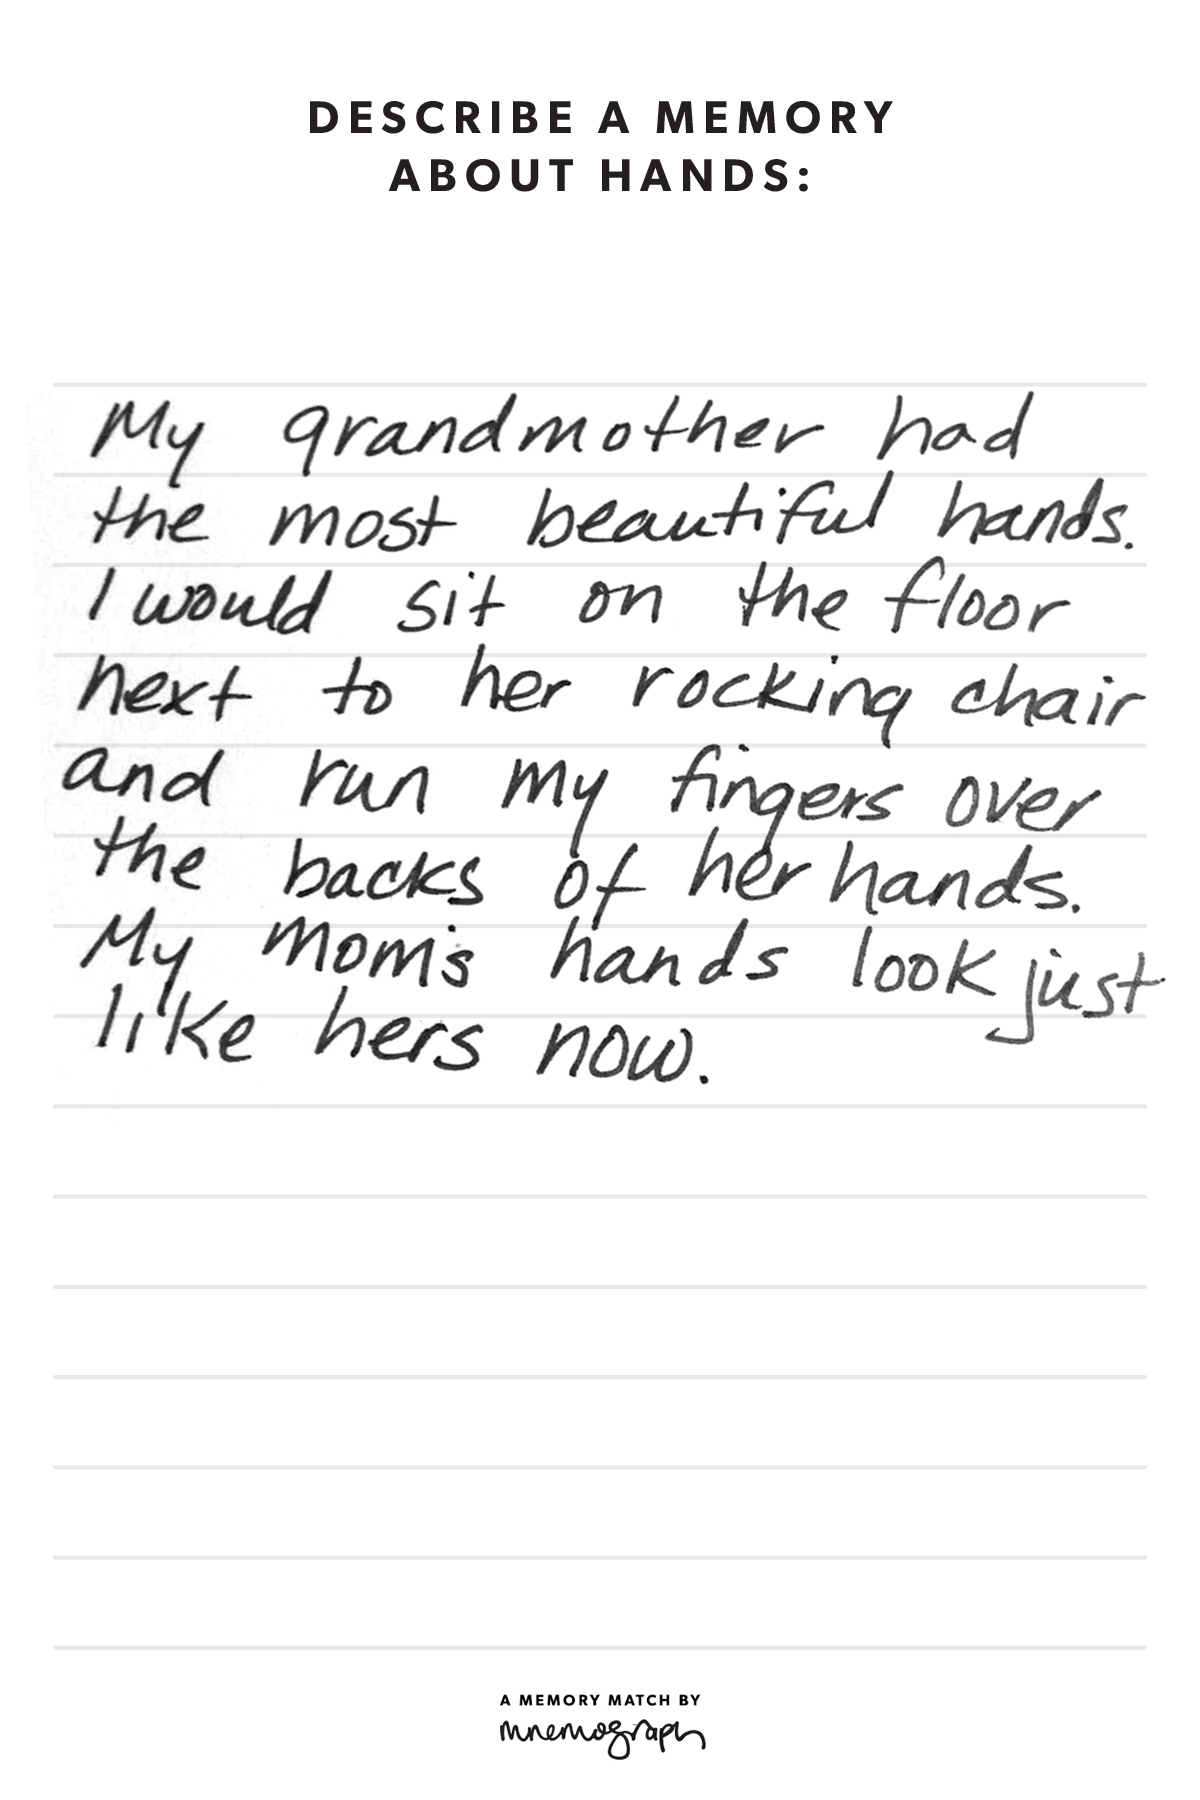 DESCRIBE A MEMORY
ABOUT HANDS:
My grandmother had
the most beautiful hands.
I would sit on the floor
next to her rocking chair
and run my fingers over
the backs of her hands.
My mom's hands look just
like hers now.
A MEMORY MATCH BY
mnemograph